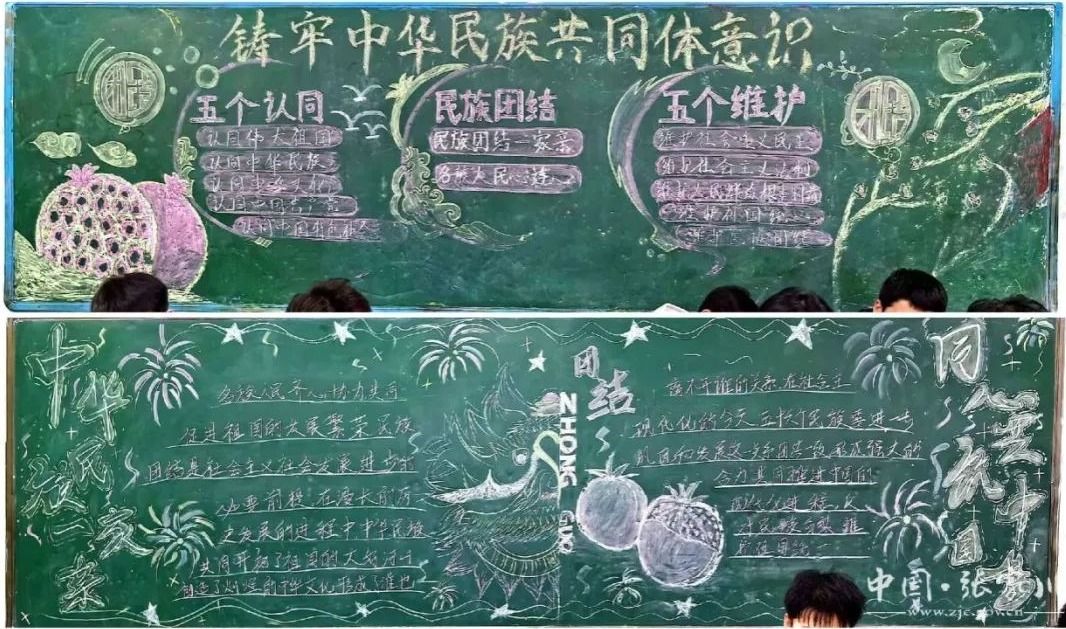 铸牢中华民族共同体意识
五个认同
认同伟大祖国
认同中华民族
认同中华文化
认同中国共产党
认同中国特色社会
民族团结
民族团结一家亲
各族人民心连心
五个维护
维护社会主义民主
维护社会主义法制
维护祖国统一
维护民族团结
中华民族一家亲
各族人民齐心协力共同
促进祖国的发展繁荣民族
团结是社会主义社会发展进步的
必要前提 在漫长的历
史发展的进程中中华民族
共同开拓了祖国的大好河山
创造了灿烂的中华文化形成了谁也
团结
ZHONG GUO
离不开谁的关系 在社会主
义现代化的今天 五十六个民族要进一步
巩固和发展这
合力共同推进中国的
现代化进程
同心共筑中国梦
中国·张家川
www.zjc.gov.cn